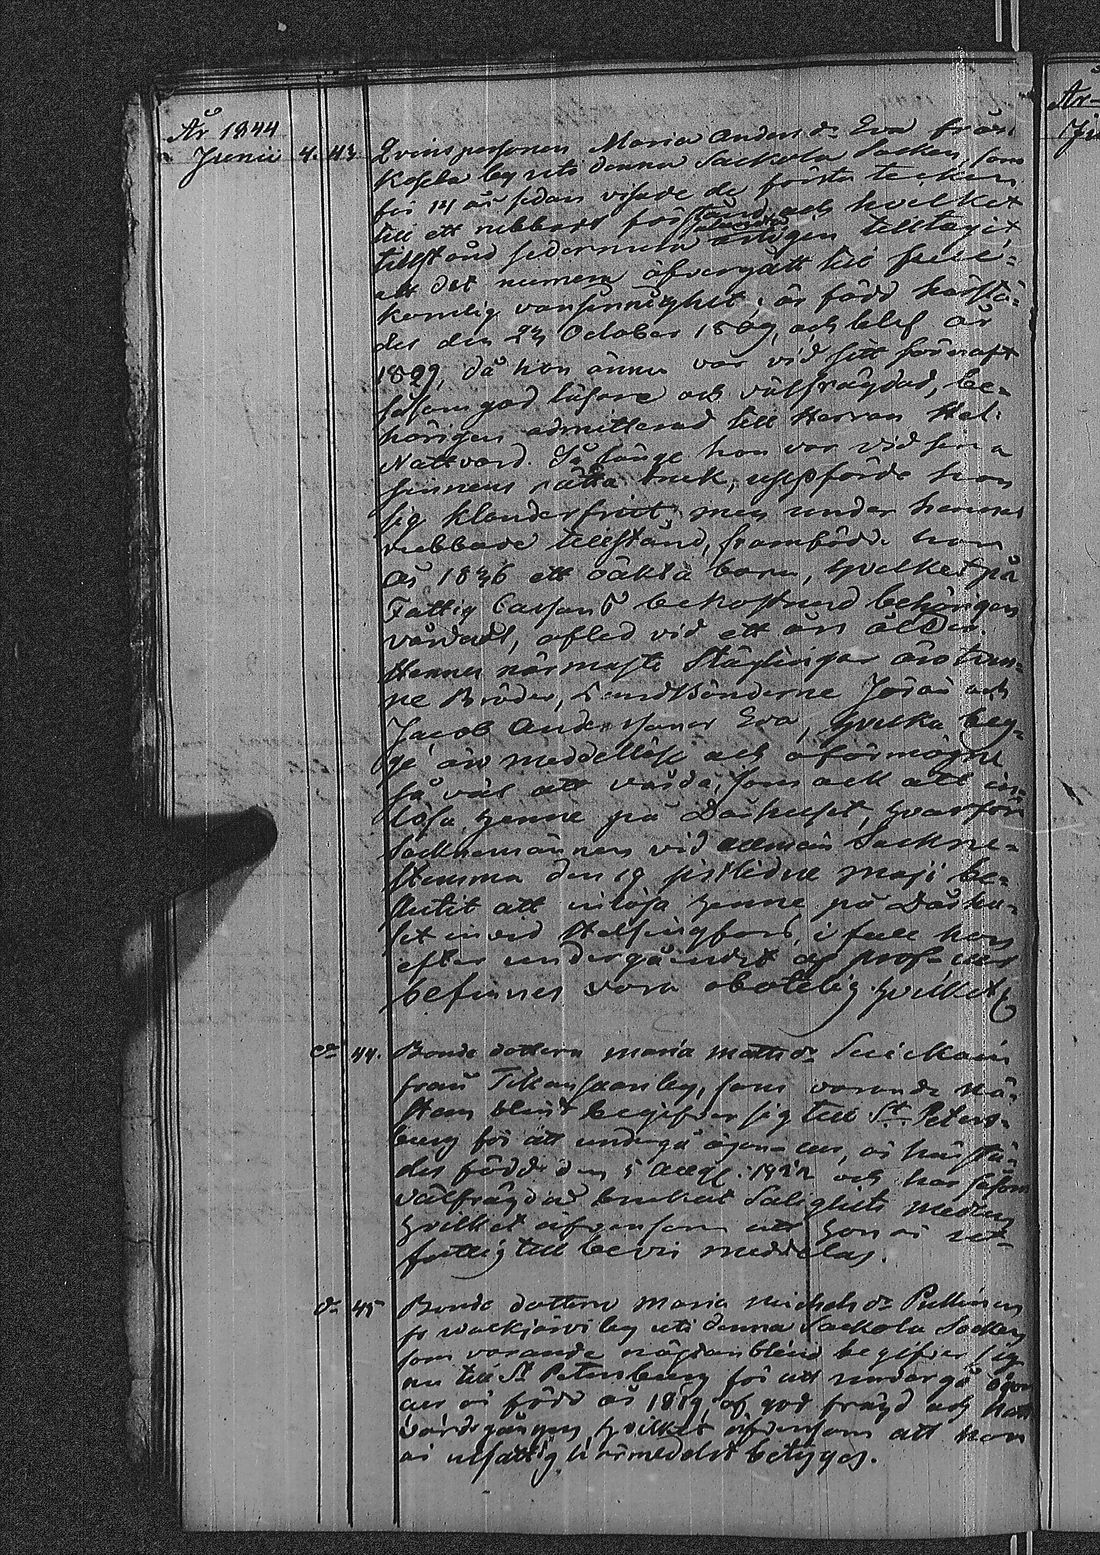 År 1844
Junii 4. 43. Qvinspersonen Maria Anders dr Eva från
Kosela by uti denna Sackola Socken, som
för 14 år sedan visade de första tecken
till ett rubbadt förstånd, och hvilket
tillstånd sedermera årligen tilltagit,
att det numera öfvergått till full-
komlig vansinnighet, är född härstä-
des den 24 October 1809, och blef år
1829, då hon ännu var vid sitt förnuft
såsom god läsare och välfrägdad, be-
hörigen admitterad till Herrans Hel.
Nattvard. Så länge hon var vid sina
sinnens rätta bruk, uppförde hon
sig klanderfritt, men under hennes
rubbade tillstånd, framfödde hon
år 1836 ett oäkta barn, hvilket på
Fattig Cassans bekostnad behörigen
vårdadt, afled vid ett års ålder.
Hennes närmaste Släglingar äro tven-
ne Bröder, Landtbönderne Jöran och
Jacob Anderssöner Eva, hvilka beg-
ge äro meddellöse och oförmögne
så väl att vårda, som ock att in-
lösa henne på Dårhuset, hvarföre
Socknemännen vid allmän Sockne-
stemma den 19 sistledne Maji be-
slutit att inlösa henne på Dårhu-
set invid Helsingfors, i fall hon
efter undergåendet af prof cur
befinnes vara obotelig hvilket
dr 44. Bonde dottern Maria Matts dr Suickain
från Tikansaari by, som varande nä-
stan blind begifver sig till St. Peters-
burg för att undergå ögon cur, är härstä-
des född den 5 Aug. 1822 och har såsom
välfrägdad brukat Salighets medlen
hvilket äfvensom att hon är ut-
fattig till bevis meddelas.
dr 45 Bonde dottern Maria Michels dr Pullinen
fr Walkjärvi by uti denna Sackola Socken
som varande nästan blind begifver sig
nu till St Petersburg för att undergå ögon
cur är född år 1819 af god frägd och Natt
vardsgången, hvilket äfvensom att hon
är utfattig härmedelst betygas.
År
Ju